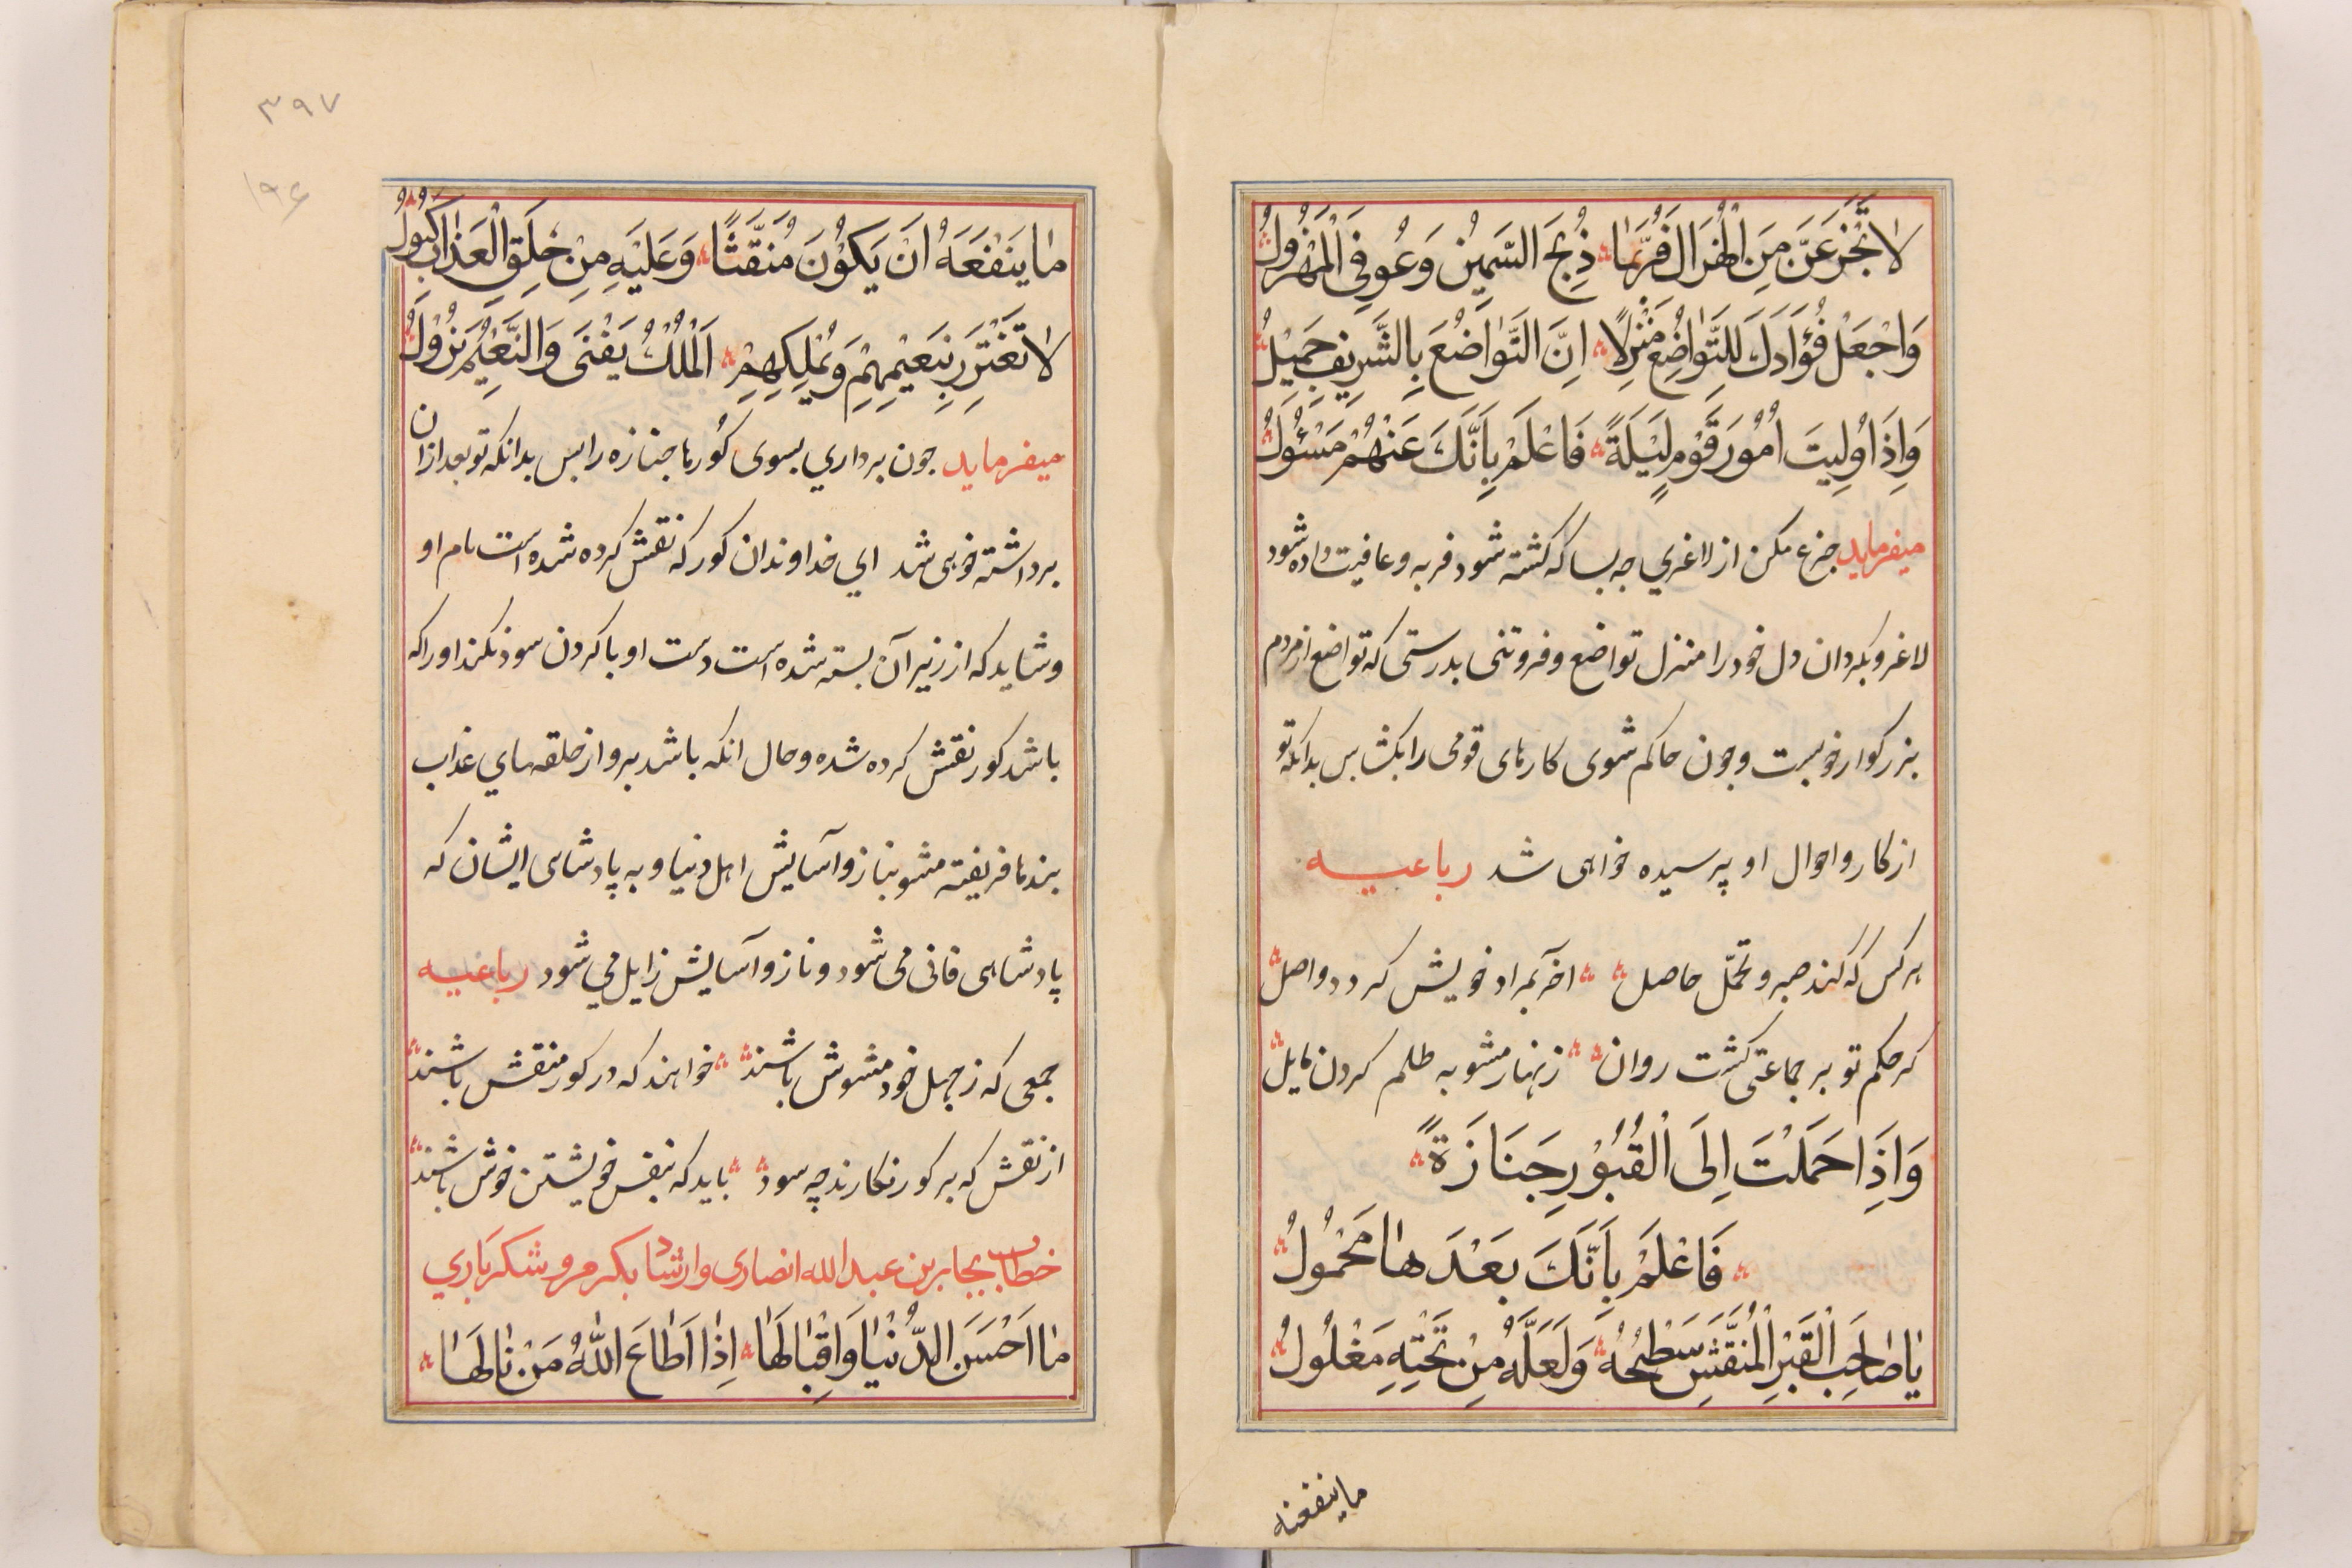 لَا تَجْزَعَنَّ مِنَ الْهُزَالِ فَرُبَّمَا ذُبِحَ السَّمِيْنُ وَعُوفِيَ الْمَهْزُولُ
وَاجْعَلْ فُؤَادَكَ لِلتَّوَاضُعِ مَنْزِلًا اِنَّ التَّوَاضُعَ بِالشَّرِيفِ جَمِيْلُ
وَاِذَا وُلِيتَ اُمُورَ قَوْمٍ لَيْلَةً فَاعْلَمْ بِاَنَّكَ عَنْهُمْ مَسْئُولُ
میفرماید جزع مکن از لاغری جه بسا که کشته شود فربه و عافیت داده شود
لاغر و بکردان دل خود را منزل تواضع و فروتنی بدرستی که تواضع از مردم
بزرکوار خوبست و جون حاکم شوی کارهای قومی را یکشب بس بدانکه تو
از کار و احوال او پرسیده خواهی شد رباعیه
هر کس که کند صبر و تحمّل حاصل اخر بمراد خویش کردد واصل
کر حکم تو بر جماعتی کشت روان زنهار مشو به ظلم کردن مایل
وَاِذَا حَمَلْتَ اِلَى الْقُبُوْرِ جَنَازَةً
فَاعْلَمْ بِاَنَّكَ بَعْدَهَا مَحْمُولُ
يَا صَاحِبَ الْقَبْرِ الْمُنَقَّشِ سَطْحُهُ وَلَعَلَّهُ مِنْ تَحْتِهِ مَغْلُولُ
ماینفعه
٣٩٧
١٩۶
مَا يَنْفَعَهُ اَنْ يَكُوْنَ مُنَقَّشًا وَعَلَيْهِ مِنْ حَلَقِ الْعَذَابِ كُبُولُ
لَا تَغْتَرِرْ بِنَعِيْمِهِمْ وَبِمُلْكِهِمْ اَلْمُلْكُ يَفْنَى وَالنَّعِيْمُ يَزُوْلُ
میفرماید جون برداری بسوی کورها جنازه را بس بدانکه تو بعد ازان
برداشته خواهی شد ای خداوندان کور که نقش کرده شده است بام او
و شاید که از زیر آن بسته شده است دست او با کردن سود نکند او را که
باشد کور نقش کرده شده و حال انکه باشد برو از حلقهای عذاب
بندها فریفته مشو بناز و آسایش اهل دنیا و به پادشاهی ایشان که
پادشاهی فانی می شود و ناز و آسایش زایل می شود رباعیه
جمعی که ز جهل خود مشوش باشند خواهند که در کور منقش باشند
از نقش که بر کور نکارند چه سود باید که بنفس خویشتن خوش باشند
خطاب بجابر بن عبد الله انصاری و ارشاد بکرم و شکر باری
مَا اَحْسَنَ الدُّنْيَا وَاِقْبَالَهَا اِذَا اَطَاعَ اللّٰهَ مَنْ نَالَهَا